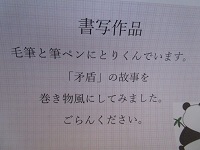 書写作品
毛筆と筆ペンにとりくんでいます。
「矛盾」の故事を
巻き物風にしてみました。
ごらんください。